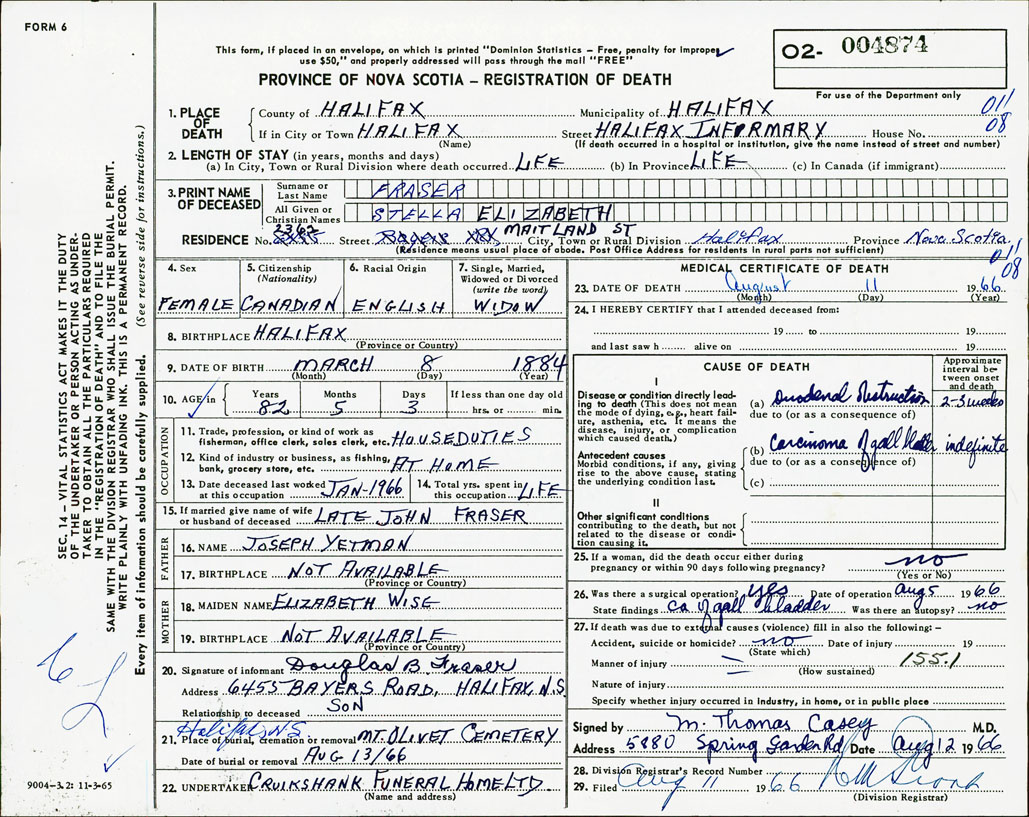 FORM 6
This form, if placed in an envelope, on which is printed "Dominion Statistics – Free, penalty for improper
use $50," and properly addressed will pass through the mail "FREE"
PROVINCE OF NOVA SCOTIA – REGISTRATION OF DEATH
O2- 004874
For use of the Department only
SEC. 14 – VITAL STATISTICS ACT MAKES IT THE DUTY
OF THE UNDERTAKER OR PERSON ACTING AS UNDER-
TAKER TO OBTAIN ALL THE PARTICULARS REQUIRED
IN THE "REGISTRATION OF DEATH" AND TO FILE THE
SAME WITH THE DIVISION REGISTRAR WHO SHALL ISSUE THE BURIAL PERMIT.
WRITE PLAINLY WITH UNFADING INK. THIS IS A PERMANENT RECORD.
Every item of information should be carefully supplied. (See reverse side for instructions.)
1. PLACE OF DEATH
County of HALIFAX Municipality of HALIFAX 011
If in City or Town HALIFAX Street HALIFAX INFORMARY House No. 08
(Name) (If death occurred in a hospital or institution, give the name instead of street and number)
2. LENGTH OF STAY (in years, months and days)
(a) In City, Town or Rural Division where death occurred LIFE (b) In Province LIFE (c) In Canada (if immigrant)
3. PRINT NAME OF DECEASED
Surname or Last Name FRASER
All Given or Christian Names STELLA ELIZABETH
RESIDENCE No. 2362 Street MAITLAND ST City, Town or Rural Division Halifax Province Nova Scotia
(Residence means usual place of abode. Post Office Address for residents in rural parts not sufficient)
011
08
4. Sex FEMALE
5. Citizenship (Nationality) CANADIAN
6. Racial Origin ENGLISH
7. Single, Married, Widowed or Divorced (write the word) WIDOW
8. BIRTHPLACE HALIFAX
(Province or Country)
9. DATE OF BIRTH MARCH 8 1884
(Month) (Day) (Year)
10. AGE in Years Months Days If less than one day old
82 5 3 hrs. or min.
OCCUPATION
11. Trade, profession, or kind of work as
fisherman, office clerk, sales clerk, etc. HOUSEDUTIES
12. Kind of industry or business, as fishing,
bank, grocery store, etc. AT HOME
13. Date deceased last worked at this occupation JAN-1966 14. Total yrs. spent in this occupation LIFE
15. If married give name of wife
or husband of deceased LATE JOHN FRASER
FATHER
16. NAME JOSEPH YETMAN
17. BIRTHPLACE NOT AVAILABLE
(Province or Country)
MOTHER
18. MAIDEN NAME ELIZABETH WISE
19. BIRTHPLACE NOT AVAILABLE
(Province or Country)
20. Signature of informant Douglas B. Fraser
Address 6455 BAYERS ROAD, HALIFAX, N.S.
Relationship to deceased SON
Halifax, N.S.
21. Place of burial, cremation or removal MT. OLIVET CEMETERY
Date of burial or removal AUG 13/66
22. UNDERTAKER CRUIKSHANK FUNERAL HOME LTD.
(Name and address)
9004-3.2: 11-3-65
MEDICAL CERTIFICATE OF DEATH
23. DATE OF DEATH August 11 1966
(Month) (Day) (Year)
24. I HEREBY CERTIFY that I attended deceased from:
19 to 19
and last saw h alive on 19
CAUSE OF DEATH
Approximate interval between onset and death
I
Disease or condition directly lead-
ing to death (This does not mean
the mode of dying, e.g., heart fail-
ure, asthenia, etc. It means the
disease, injury, or complication
which caused death.)
(a) Duodenal Obstruction 2-3 weeks
due to (or as a consequence of)
Antecedent causes
Morbid conditions, if any, giving
rise to the above cause, stating
the underlying condition last.
(b) Carcinoma of gall bladder indefinite
due to (or as a consequence of)
(c)
II
Other significant conditions
contributing to the death, but not
related to the disease or condi-
tion causing it.
25. If a woman, did the death occur either during
pregnancy or within 90 days following pregnancy? no
(Yes or No)
26. Was there a surgical operation? yes Date of operation Aug 5 1966
State findings Ca of gall bladder Was there an autopsy? no
27. If death was due to external causes (violence) fill in also the following:–
Accident, suicide or homicide? no Date of injury 19
(State which)
Manner of injury 155.1
(How sustained)
Nature of injury
Specify whether injury occurred in Industry, in home, or in public place
Signed by M. Thomas Casey M.D.
Address 5880 Spring Garden Rd Date Aug 12 1966
28. Division Registrar's Record Number
29. Filed Aug 11 1966
(Division Registrar)